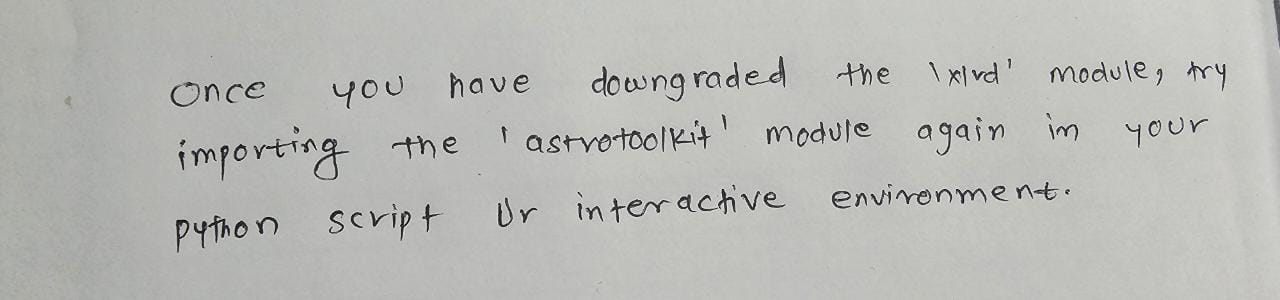 Once you have downgraded the 'xlrd' module, try
importing the 'astrotoolkit' module again in your
python script or interactive environment.